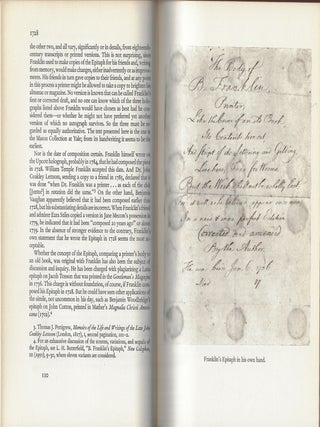 1728
the other two, and all vary, significantly or in details, from eighteenth-
century transcripts or printed versions. This is not surprising, since
Franklin used to make copies of the Epitaph for his friends and, writing
from memory, would make changes, either inadvertently or as improve-
ments. His friends in turn gave copies to their friends, and at any point
in this process a printer might be allowed to take a copy to brighten his
almanac or magazine. No version is known that can be called Franklin's
first or corrected draft, and no one can know which of the three holo-
graphs listed above should be considered the one he would have pre-
ferred them—or whether he might not have preferred yet another
version of which no autograph survives. So the three must be re-
garded as equally authoritative. The text presented here is the one in
the Mason Collection at Yale; from its handwriting it seems to be the
earliest.
Nor is the date of composition certain. Franklin himself wrote on
the Upcott holograph, probably in 1784, that he had composed the piece
in 1728. William Temple Franklin accepted this date. And Dr. John
Coakley Lettsom, sending a copy to a friend in 1785, declared that it
was done "when Dr. Franklin was a printer
in rotation did the same." On the other hand, Benjamin
Vaughan apparently believed that it had been composed earlier than
1728, but his substantiating details are incorrect. When Franklin's friend
and admirer Ezra Stiles copied it in Jane Mecom's possession in
1779, he indicated that it had been "composed 50 years ago" or about
1729. In the absence of stronger evidence to the contrary, Franklin's
own statement that he wrote the Epitaph in 1728 must be
accepted.
Whether the concept of the Epitaph, comparing a printer's body to
an old book, was original with Franklin has also been the subject of
discussion and inquiry. He has been charged with plagiarizing a Latin
epitaph on Jacob Tonson that was printed in the Gentleman's Magazine
in 1736. This charge is without foundation, of course, if Franklin com-
posed his Epitaph in 1728. But he could have seen other applications of
the simile, not uncommon in his day, such as Benjamin Woodbridge's
epitaph on John Cotton, printed in Mather's Magnalia Christi Ameri-
cana (1702).4
3. Thomas J. Pettigrew, Memoirs of the Life and Writings of the Late John
Coakley Lettsom (London, 1817), I, second pagination,
4. For an exhaustive discussion of the sources, variations, and sequels of
the Epitaph, see L. H. Butterfield, "B. Franklin's Epitaph," New Colophon,
III (1950), 9-30, where eleven variants are considered.
110
The Body of
B. Franklin,
Printer;
Like the Cover of an old Book,
Its Contents torn out,
And stript of its Lettering and Gilding,
Lies here, Food for Worms.
But the Work shall not be wholly lost:
For it will, as he believ'd, appear once more,
In a new & more perfect Edition,
Corrected and amended
By the Author.
He was born Jan. 6. 1706
Died 17
Franklin's Epitaph in his own hand.